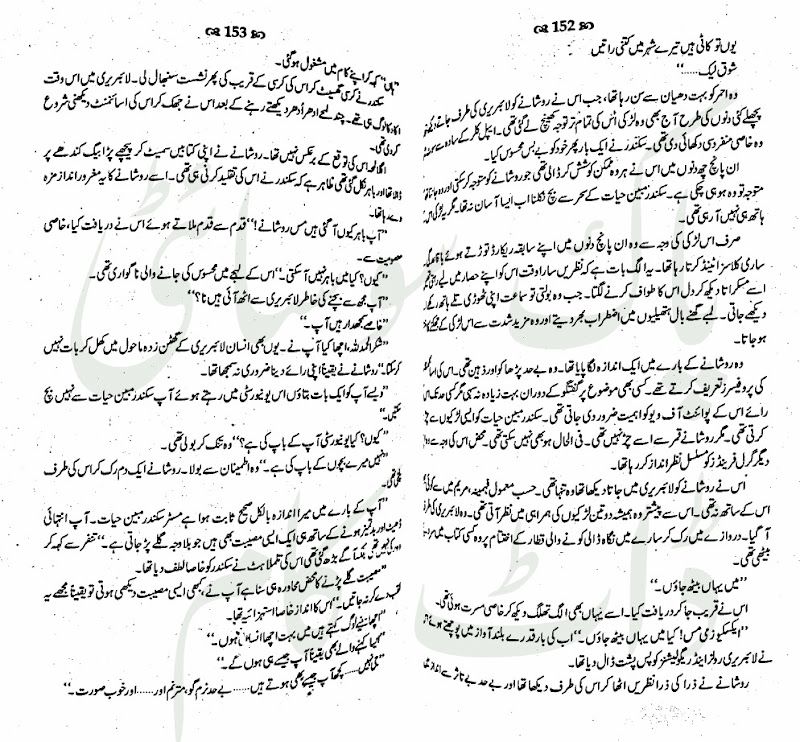 152
یوں تو کاٹی ہیں تیرے شہر میں کتنی راتیں
شوق لیک......“
وہ احمر کو بہت دھیان سے سن رہا تھا، جب اس نے روشانے کو لائبریری کی طرف جاتے دیکھا۔
پچھلے کئی دنوں کی طرح آج بھی وہ لڑکی اُس کی تمام تر توجہ کھینچ لے گئی تھی۔ ایپل کلر کے سادہ سے
وہ خاصی منفرد سی دکھائی دی تھی۔ سکندر نے ایک بار پھر خود کو بے بس محسوس کیا۔
ان پانچ چھ دنوں میں اس نے ہر وہ ممکن کوشش کر ڈالی تھی جو روشانے کو متوجہ کر سکتی اور وہ
متوجہ تو وہ ہو ہی چکی ہے۔ سکندر مبین حیات کے سحر سے بچ نکلنا اب ایسا آسان نہ تھا۔ مگر یہ لڑکی اس
ہاتھ ہی نہیں آ رہی تھی۔
صرف اس لڑکی کی وجہ سے وہ ان پانچ دنوں میں اپنے سابقہ ریکارڈ توڑتے ہوئے باقاعدگی
ساری کلاسز اٹینڈ کرتا رہا تھا۔ یہ الگ بات ہے کہ نظریں سارا وقت اس کو اپنے حصار میں لیے
اسے مسکراتا دیکھ کر دل اس کا طواف کرنے لگتا۔ جب وہ بولتی تو سماعت اپنی ٹھوڑی تلے ہاتھ رکھ کے
دیکھے جاتی۔ لمبے گھنے بال ہتھیلیوں میں اضطراب بھر دیتے اور وہ مزید شدت سے اس لڑکی کے
ہو جاتا۔
وہ روشانے کے بارے میں ایک اندازہ لگا پایا تھا۔ وہ بے حد پڑھاکو اور ذہین تھی۔ اس کی
کی پروفیسرز تعریف کرتے تھے۔ کسی بھی موضوع پر گفتگو کے دوران بہت زیادہ نہ سہی مگر کسی حد تک اس
رائے اس کے پوائنٹ آف ویو کو اہمیت ضرور دی جاتی تھی۔ سکندر مبین حیات کو ایسی لڑکیوں سے چڑ
کرتی تھی۔ مگر روشانے قمر سے اسے چڑ نہیں تھی۔ فی الحال ہو بھی نہیں سکتی تھی۔ محض اس کی وجہ سے وہ
دیگر گرل فرینڈز کو مسلسل نظر انداز کر رہا تھا۔
اس نے روشانے کو لائبریری میں جاتا دیکھا تھا وہ تنہا تھی۔ حسب معمول فہمینہ، مریم میں سے کوئی
اس کے ساتھ نہ تھی۔ اس سے پیشتر وہ ہمیشہ دو تین لڑکیوں کی ہمراہی میں نظر آتی تھی۔ وہ لائبریری کی طرف
آ گیا۔ دروازے میں رک کر سارے میں نگاہ ڈالی کونے والی قطار کے اختتام پر وہ کسی کتاب میں سر دیے
بیٹھی تھی۔
”میں یہاں بیٹھ جاؤں۔“
اس نے قریب جا کر دریافت کیا۔ اسے یہاں بھی الگ تھلگ دیکھ کر خاصی مسرت ہوئی تھی۔
”ایکسکیوز می مس! کیا میں یہاں بیٹھ جاؤں۔“ اب کی بار قدرے بلند آواز میں پوچھتے ہوئے اس
نے لائبریری رولز اینڈ ریگولیشنز کو پس پشت ڈال دیا تھا۔
روشانے نے ذرا کی ذرا نظریں اٹھا کر اس کی طرف دیکھا تھا اور بے حد بے تاثر سے انداز میں
153
”ہاں“ کہہ کر اپنے کام میں مشغول ہو گئی۔
سکندر نے کرسی گھسیٹ کر اس کی کرسی کے قریب کی پھر نشست سنبھال لی۔ لائبریری میں اس وقت
اکا دکا لوگ ہی تھے۔ چند لمحے ادھر اُدھر دیکھتے رہنے کے بعد اس نے جھک کر اس کی اسائنمنٹ دیکھنی شروع
کر دی تھی۔
اگلا لمحہ اس کی توقع کے برعکس نہیں تھا۔ روشانے نے اپنی کتابیں سمیٹ کر پیچھے پڑا بیگ کندھے پر
ڈالا تھا اور باہر نکل گئی تھی ظاہر ہے کہ سکندر نے اس کی تقلید کرنی ہی تھی۔ اسے روشانے کا یہ مغرور انداز مزہ
دے رہا تھا۔
”آپ باہر کیوں آ گئی ہیں مس روشانے!“ قدم سے قدم ملاتے ہوئے اس نے دریافت کیا، خاصی
معصومیت سے۔
”کیوں؟ کیا میں باہر نہیں آ سکتی۔“ اس کے لہجے میں محسوس کی جانے والی ناگواری تھی۔
”آپ مجھ سے بچنے کی خاطر لائبریری سے اٹھ آئی ہیں نا؟“
”خاصے سمجھدار ہیں آپ۔“
”شکر الحمد للہ، اچھا کیا آپ نے۔ یوں بھی انسان لائبریری کے گھٹن زدہ ماحول میں کھل کر بات نہیں
کر سکتا۔“ روشانے نے یقیناً اپنی رائے دینا ضروری نہ سمجھا تھا۔
”ویسے آپ کو ایک بات بتاؤں اس یونیورسٹی میں رہتے ہوئے آپ سکندر مبین حیات سے نہیں بچ
سکتیں۔“
”کیوں؟ کیا یونیورسٹی آپ کے باپ کی ہے؟“ وہ تنک کر بولی تھی۔
”نہیں میرے بچوں کے باپ کی ہے۔“ وہ اطمینان سے بولا۔ روشانے ایک دم رک کر اس کی طرف
پلٹی تھی۔
”آپ کے بارے میں میرا اندازہ بالکل صحیح ثابت ہوا ہے مسٹر سکندر مبین حیات۔ آپ انتہائی
ڈھیٹ اور بدتمیز ہونے کے ساتھ ہی ایک ایسی مصیبت بھی ہیں جو بلاوجہ گلے پڑ جاتی ہے۔“ تنفر سے کہہ کر
آگے بڑھ گئی تھی اس کی تلملاہٹ نے سکندر کو خاصا لطف دیا تھا۔
”مصیبت گلے پڑنے کا محض محاورہ ہی سنا ہے آپ نے، کبھی ایسی مصیبت دیکھی ہوتی تو یقیناً مجھے یہ
لقب دے کر نہ جاتیں۔“ اس کا انداز خاصا استہزائیہ تھا۔
”اچھا سنیے لوگ کہتے ہیں میں بہت اچھا انسان ہوں۔“
”کیا کہنے والے بھی یقیناً آپ جیسے ہی ہوں گے۔“
”نہیں...... کچھ آپ جیسے بھی ہوتے ہیں...... بے حد نرم گو، مترنم اور...... اور خوب صورت۔“